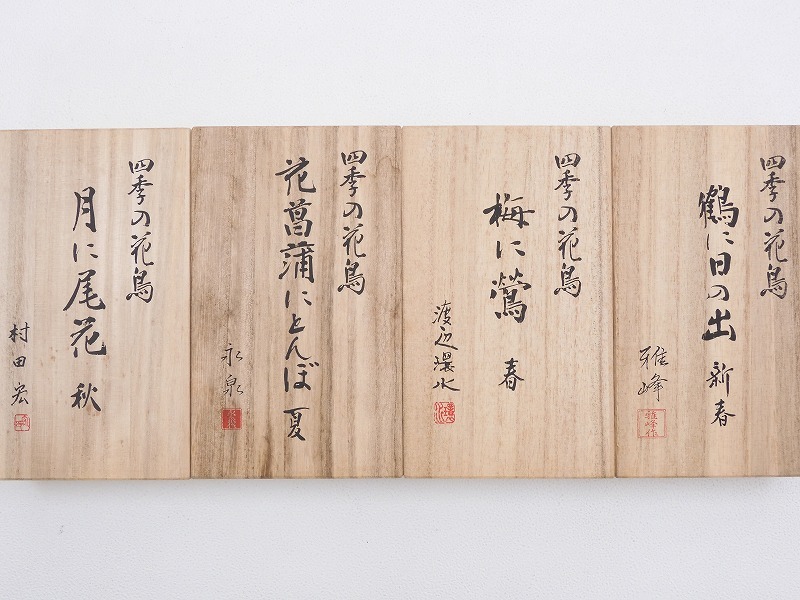 四季の花鳥
鶴に日の出 新春
雅峰
雅峰作
四季の花鳥
梅に鶯 春
渡辺環水
四季の花鳥
花菖蒲にとんぼ 夏
永泉
四季の花鳥
月に尾花 秋
村田宏